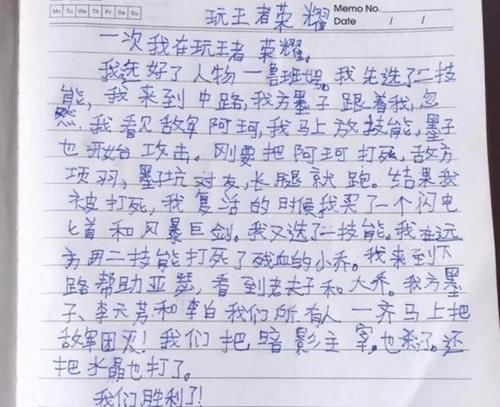 玩王者荣耀
Memo No.
Mo Tu We Th Fr Sa Su
Date / /
一次我在玩王者荣耀。
我选好了人物一鲁班号。我先选了二技
能，我来到中路，我方墨子跟着我，忽
然，我看见敌军阿珂，我马上放技能，墨子
也开始攻击。刚要把阿珂打死，敌方
项羽，墨坑对友，长腿就跑。结果我
被打死，我复活的时候我买了一个闪电
匕首和风暴巨剑。我又选了一技能。我在远
方用二技能打死了残血的小乔。我来到下
路帮助亚瑟，看到老夫子和大乔。我方墨
子、李元芳和李白我们所有人一齐马上把
敌军团灭！我们把暗影主宰也杀了。还
把水晶也打了。
我们胜利了！